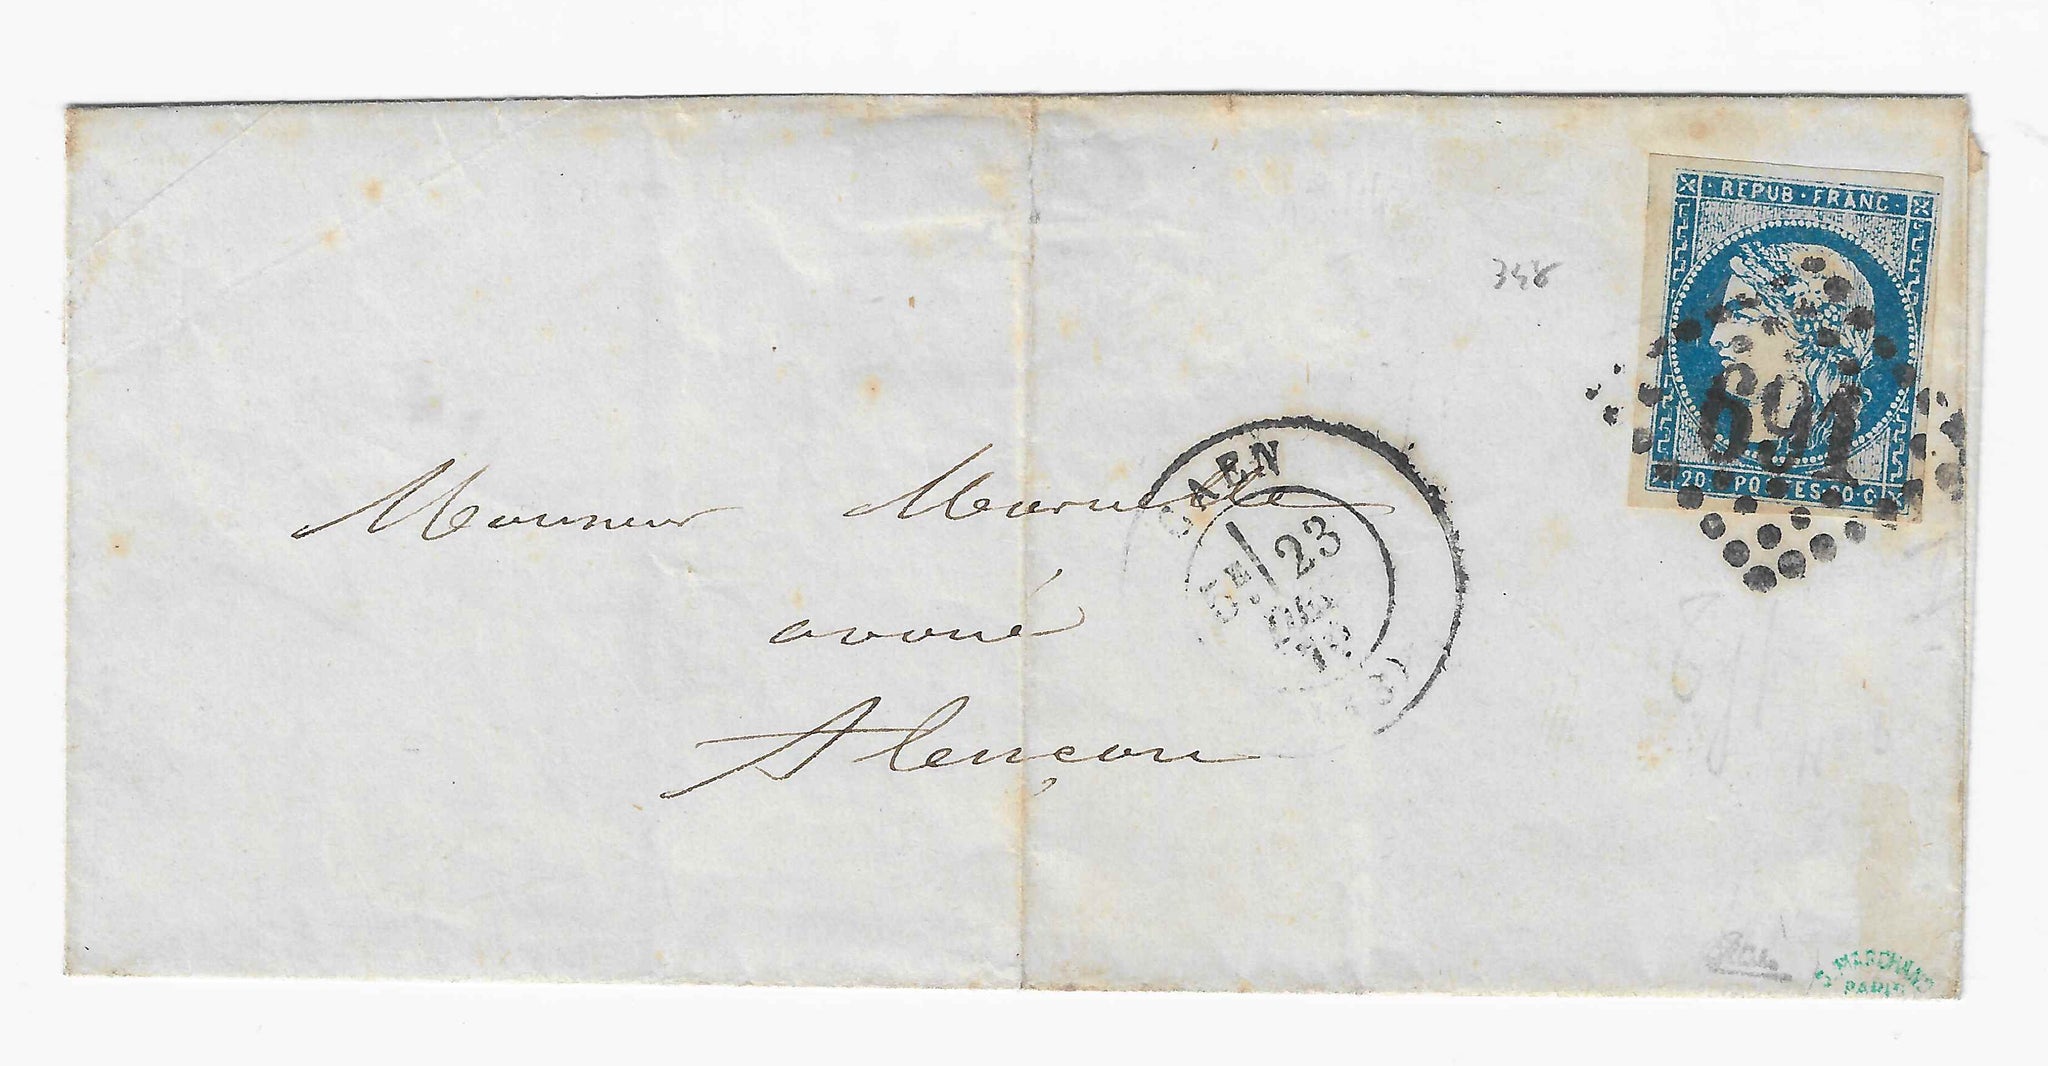 REPUB · FRANC ·
20 · POSTES · 20 · C
691
348
CAEN
5E 23
Monsieur
avoué
Alençon
MARCHAND
PARIS